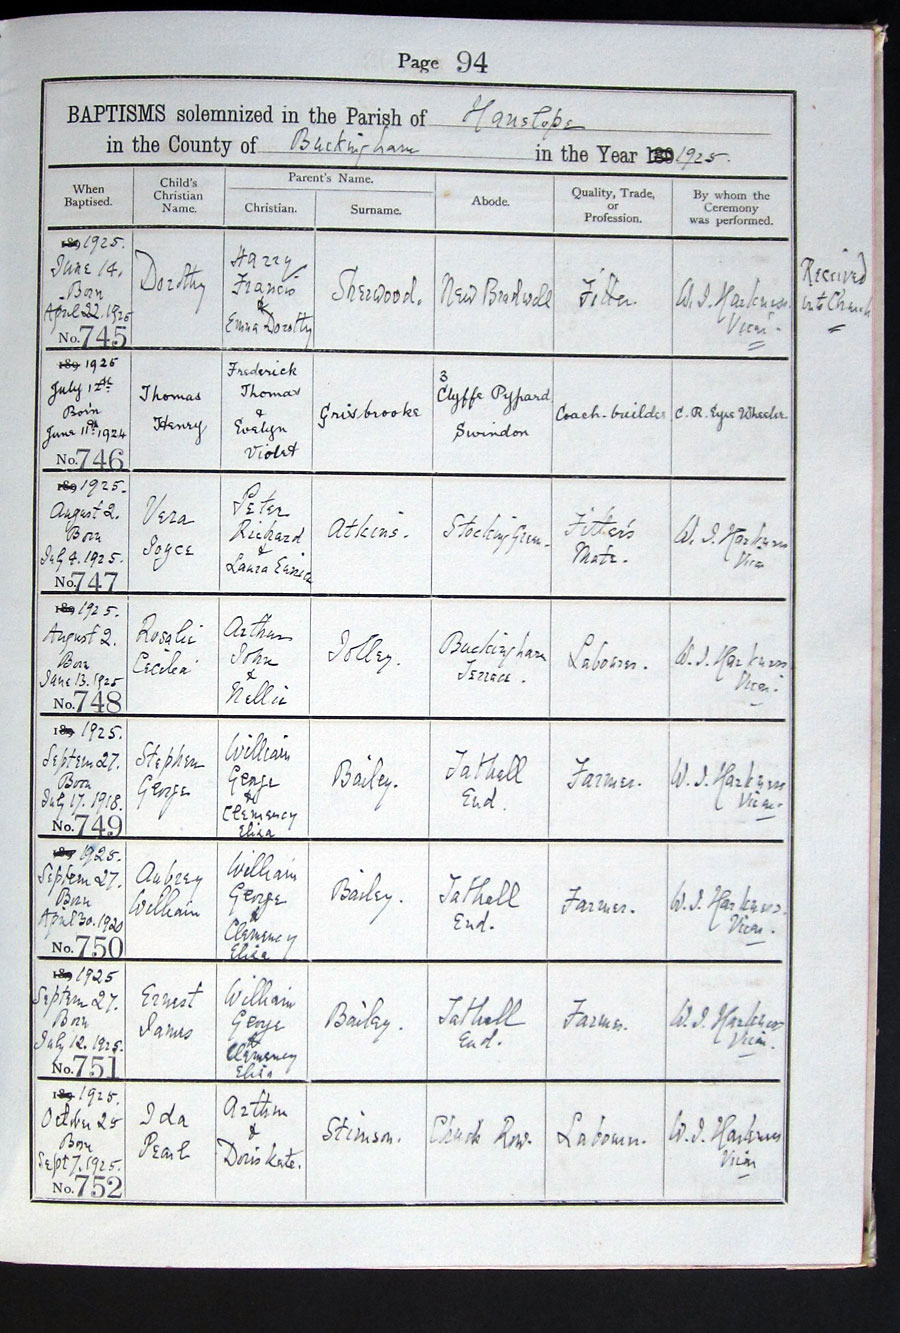 Page 94
BAPTISMS solemnized in the Parish of Hanslope
in the County of Buckingham in the Year 189 1925.
When Baptised.
Child's Christian Name.
Parent's Name.
Christian.
Surname.
Abode.
Quality, Trade, or Profession.
By whom the Ceremony was performed.
189 1925.
June 14.
Born
April 22. 1925
No. 745
Dorothy
Harry
Francis
&
Emma Dorothy
Sherwood.
New Bradwell
Fitter
W. J. Harkness
Vicar
Received
into Church
189 1925
July 12th
Born
June 11th 1924
No. 746
Thomas
Henry
Frederick
Thomas
&
Evelyn
Violet
Grisbrooke
3
Clyffe Pypard
Swindon
Coach-builder
C. R. Eyre Wheeler
189 1925.
August 2.
Born
July 4. 1925.
No. 747
Vera
Joyce
Peter
Richard
&
Laura
Atkins.
Stocking Green.
Fitter's
Mate.
W. J. Harkness
Vicar
189 1925.
August 2.
Born
June 13. 1925
No. 748
Rosalie
Cecilia
Arthur
John
&
Nellie
Jolley.
Buckingham
Terrace.
Labourer.
W. J. Harkness
Vicar.
189 1925.
Septem 27.
Born
July 17. 1918.
No. 749
Stephen
George
William
George
&
Clemency
Eliza
Bailey.
Tathall
End.
Farmer.
W. J. Harkness
Vicar.
189 1925.
Septem 27.
Born
April 30. 1920
No. 750
Aubrey
William
William
George
&
Clemency
Eliza
Bailey.
Tathall
End.
Farmer.
W. J. Harkness.
Vicar.
189 1925
Septem 27.
Born
July 12. 1925.
No. 751
Ernest
James
William
George
&
Clemency
Eliza
Bailey.
Tathall
End.
Farmer.
W. J. Harkness
Vicar.
189 1925.
October 25
Born
Sept 7. 1925.
No. 752
Ida
Pearl
Arthur
&
Doris Kate.
Stimson.
Church Row.
Labourer.
W. J. Harkness
Vicar